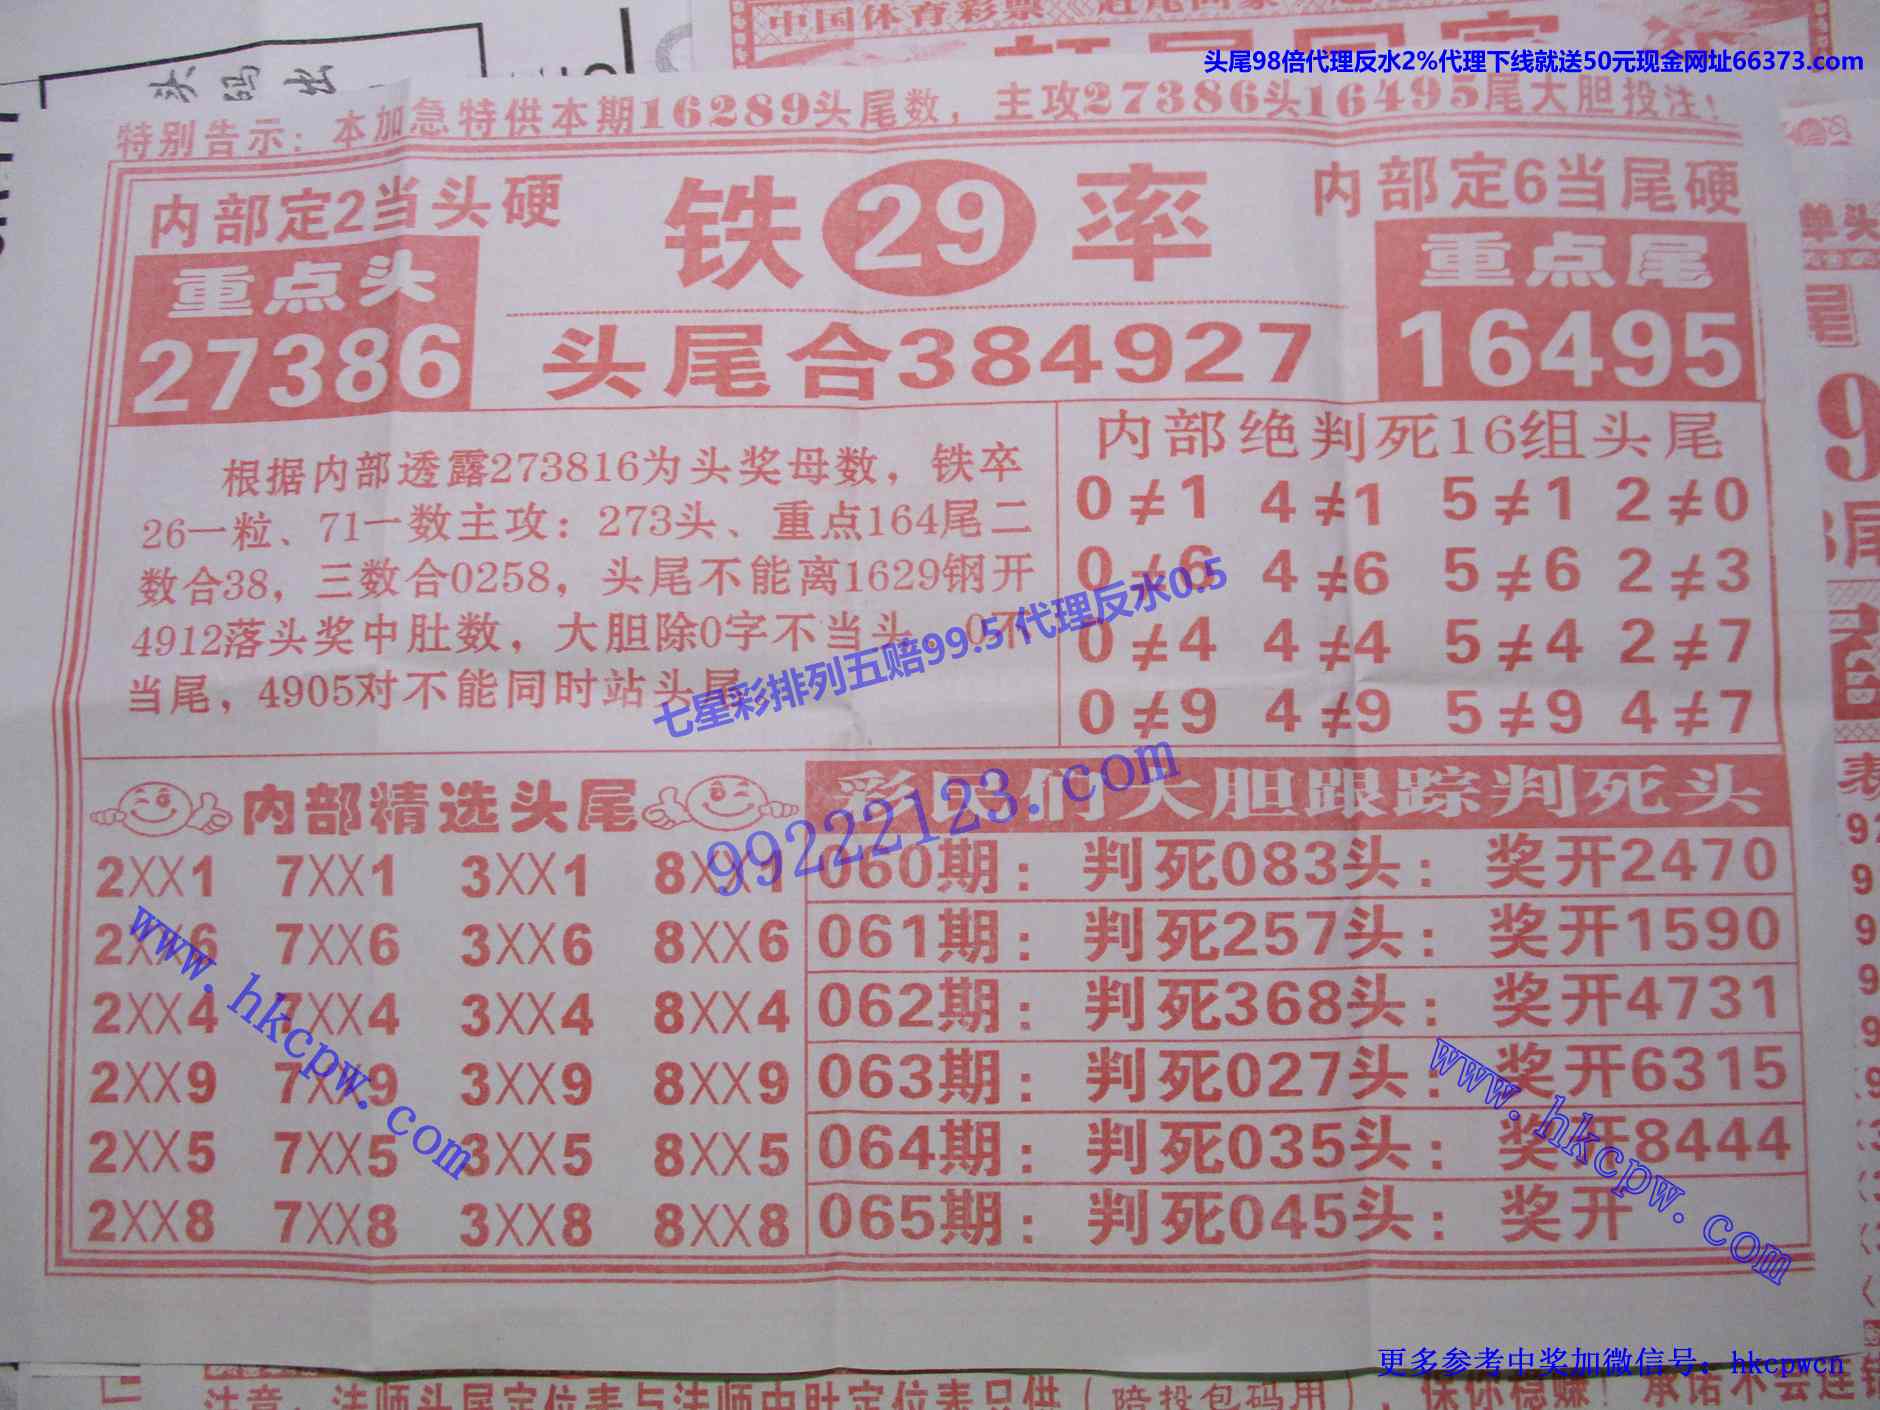 头尾98倍代理反水2%代理下线就送50元现金网址66373.com
中国体育彩票
头码出
特别告示：本加急特供本期16289头尾数，主攻27386头16495尾大胆投注！
内部定2当头硬
铁29率
内部定6当尾硬
重点头
27386
头尾合384927
重点尾
16495
根据内部透露273816为头奖母数，铁卒
26一粒、71一数主攻：273头、重点164尾二
数合38，三数合0258，头尾不能离1629钢开
4912落头奖中肚数，大胆除0字不当头，0不
当尾，4905对不能同时站头尾
内部绝判死16组头尾
0≠1 4≠1 5≠1 2≠0
0≠6 4≠6 5≠6 2≠3
0≠4 4≠4 5≠4 2≠7
0≠9 4≠9 5≠9 4≠7
七星彩排列五赔99.5 代理反水0.5
99222123.com
内部精选头尾
2XX1 7XX1 3XX1 8XX1
2XX6 7XX6 3XX6 8XX6
2XX4 7XX4 3XX4 8XX4
2XX9 7XX9 3XX9 8XX9
2XX5 7XX5 3XX5 8XX5
2XX8 7XX8 3XX8 8XX8
彩民们大胆跟踪判死头
060期：判死083头：奖开2470
061期：判死257头：奖开1590
062期：判死368头：奖开4731
063期：判死027头：奖开6315
064期：判死035头：奖开8444
065期：判死045头：奖开
www.hkcpw.com
www.hkcpw.com
单头
尾
9
尾
表
更多参考中奖加微信号：hkcpwcn
注意：法师头尾定位表与法师中肚定位表只供（陪投包码用），保你稳赚！承诺不会连错